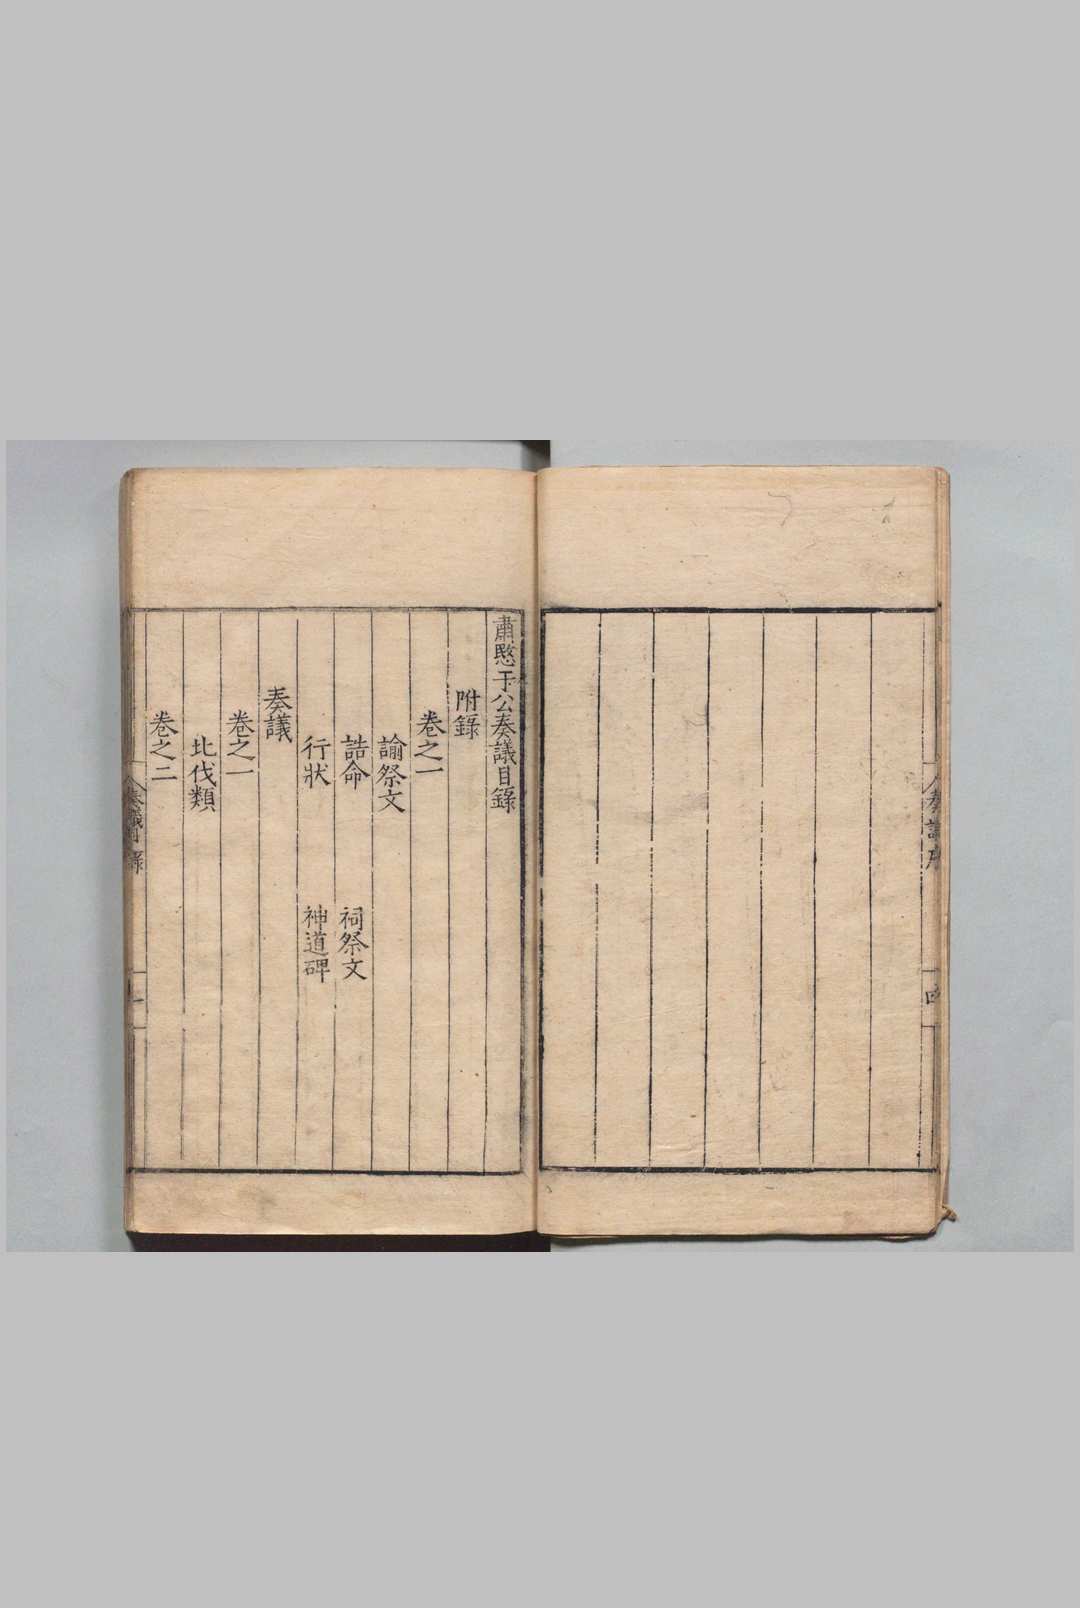 奏議序
四
肅愍于公奏議目錄
附錄
卷之一
諭祭文
誥命 祠祭文
行狀 神道碑
奏議
卷之一
北伐類
卷之二
奏議目錄